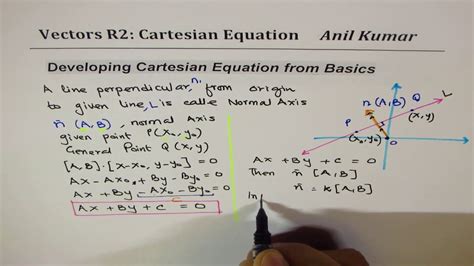 Vectors R2: Cartesian Equation Anil Kumar
Developing Cartesian Equation from Basics
A line perpendicular, n, from origin
to given line, L is calle Normal Axis
n (A, B), normal Axis
given point P(x₀, y₀)
General Point Q(x, y)
[A, B] · [x-x₀, y-y₀] = 0
Ax - Ax₀ + By - By₀ = 0
Ax + By - Ax₀ - By₀ = 0
C
Ax + By + C = 0
n (A, B)
L
Q
(x, y)
P
(x₀, y₀)
O
Ax + By + C = 0
Then n [A, B]
n = k[A, B]
In